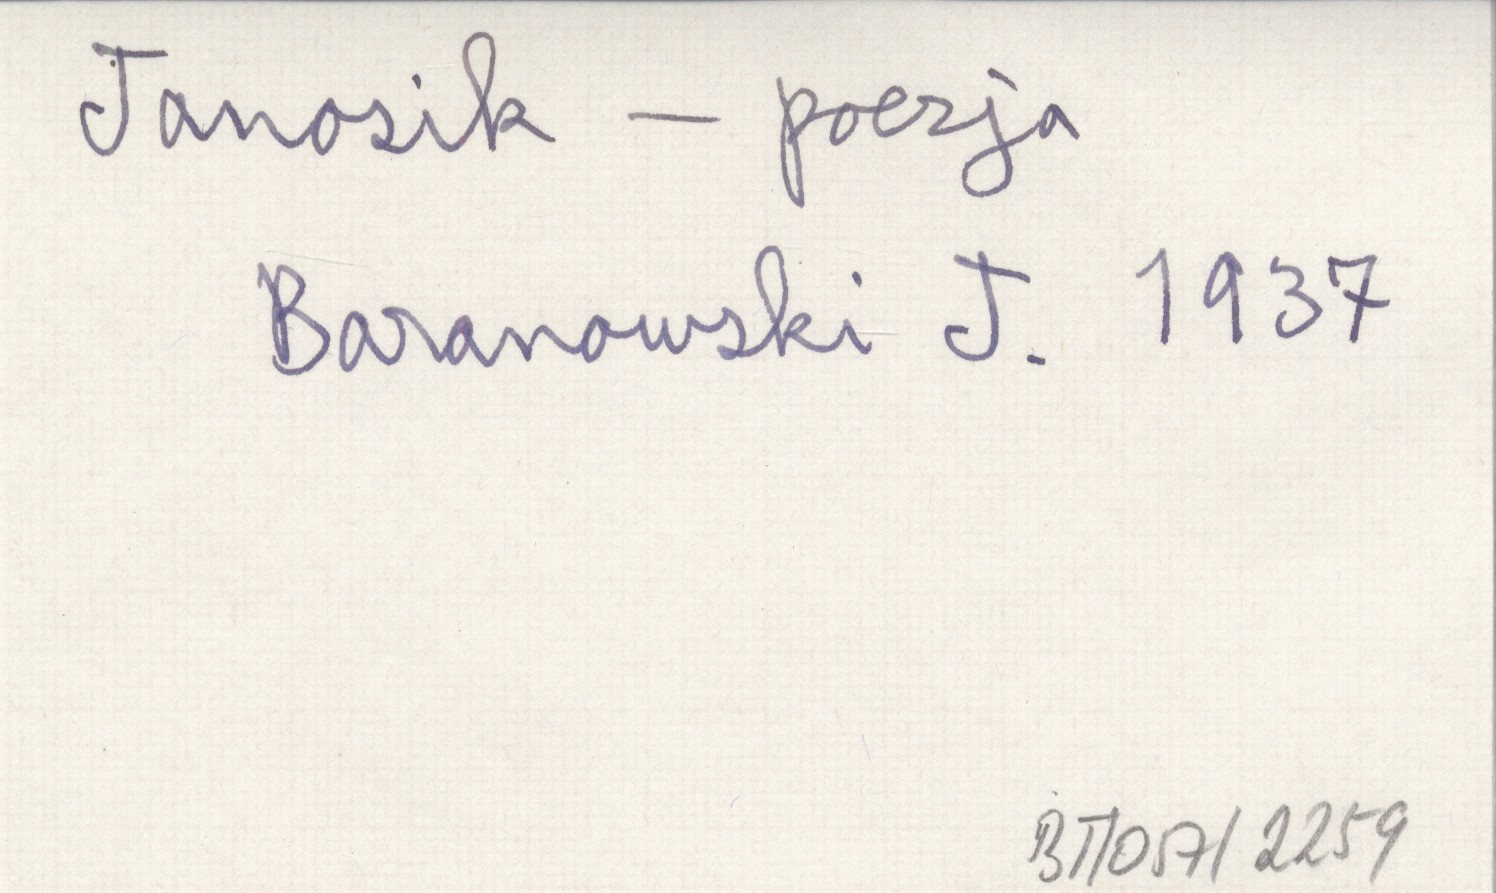 Janosik — poezja
Baranowski J. 1937
BTT057/2259